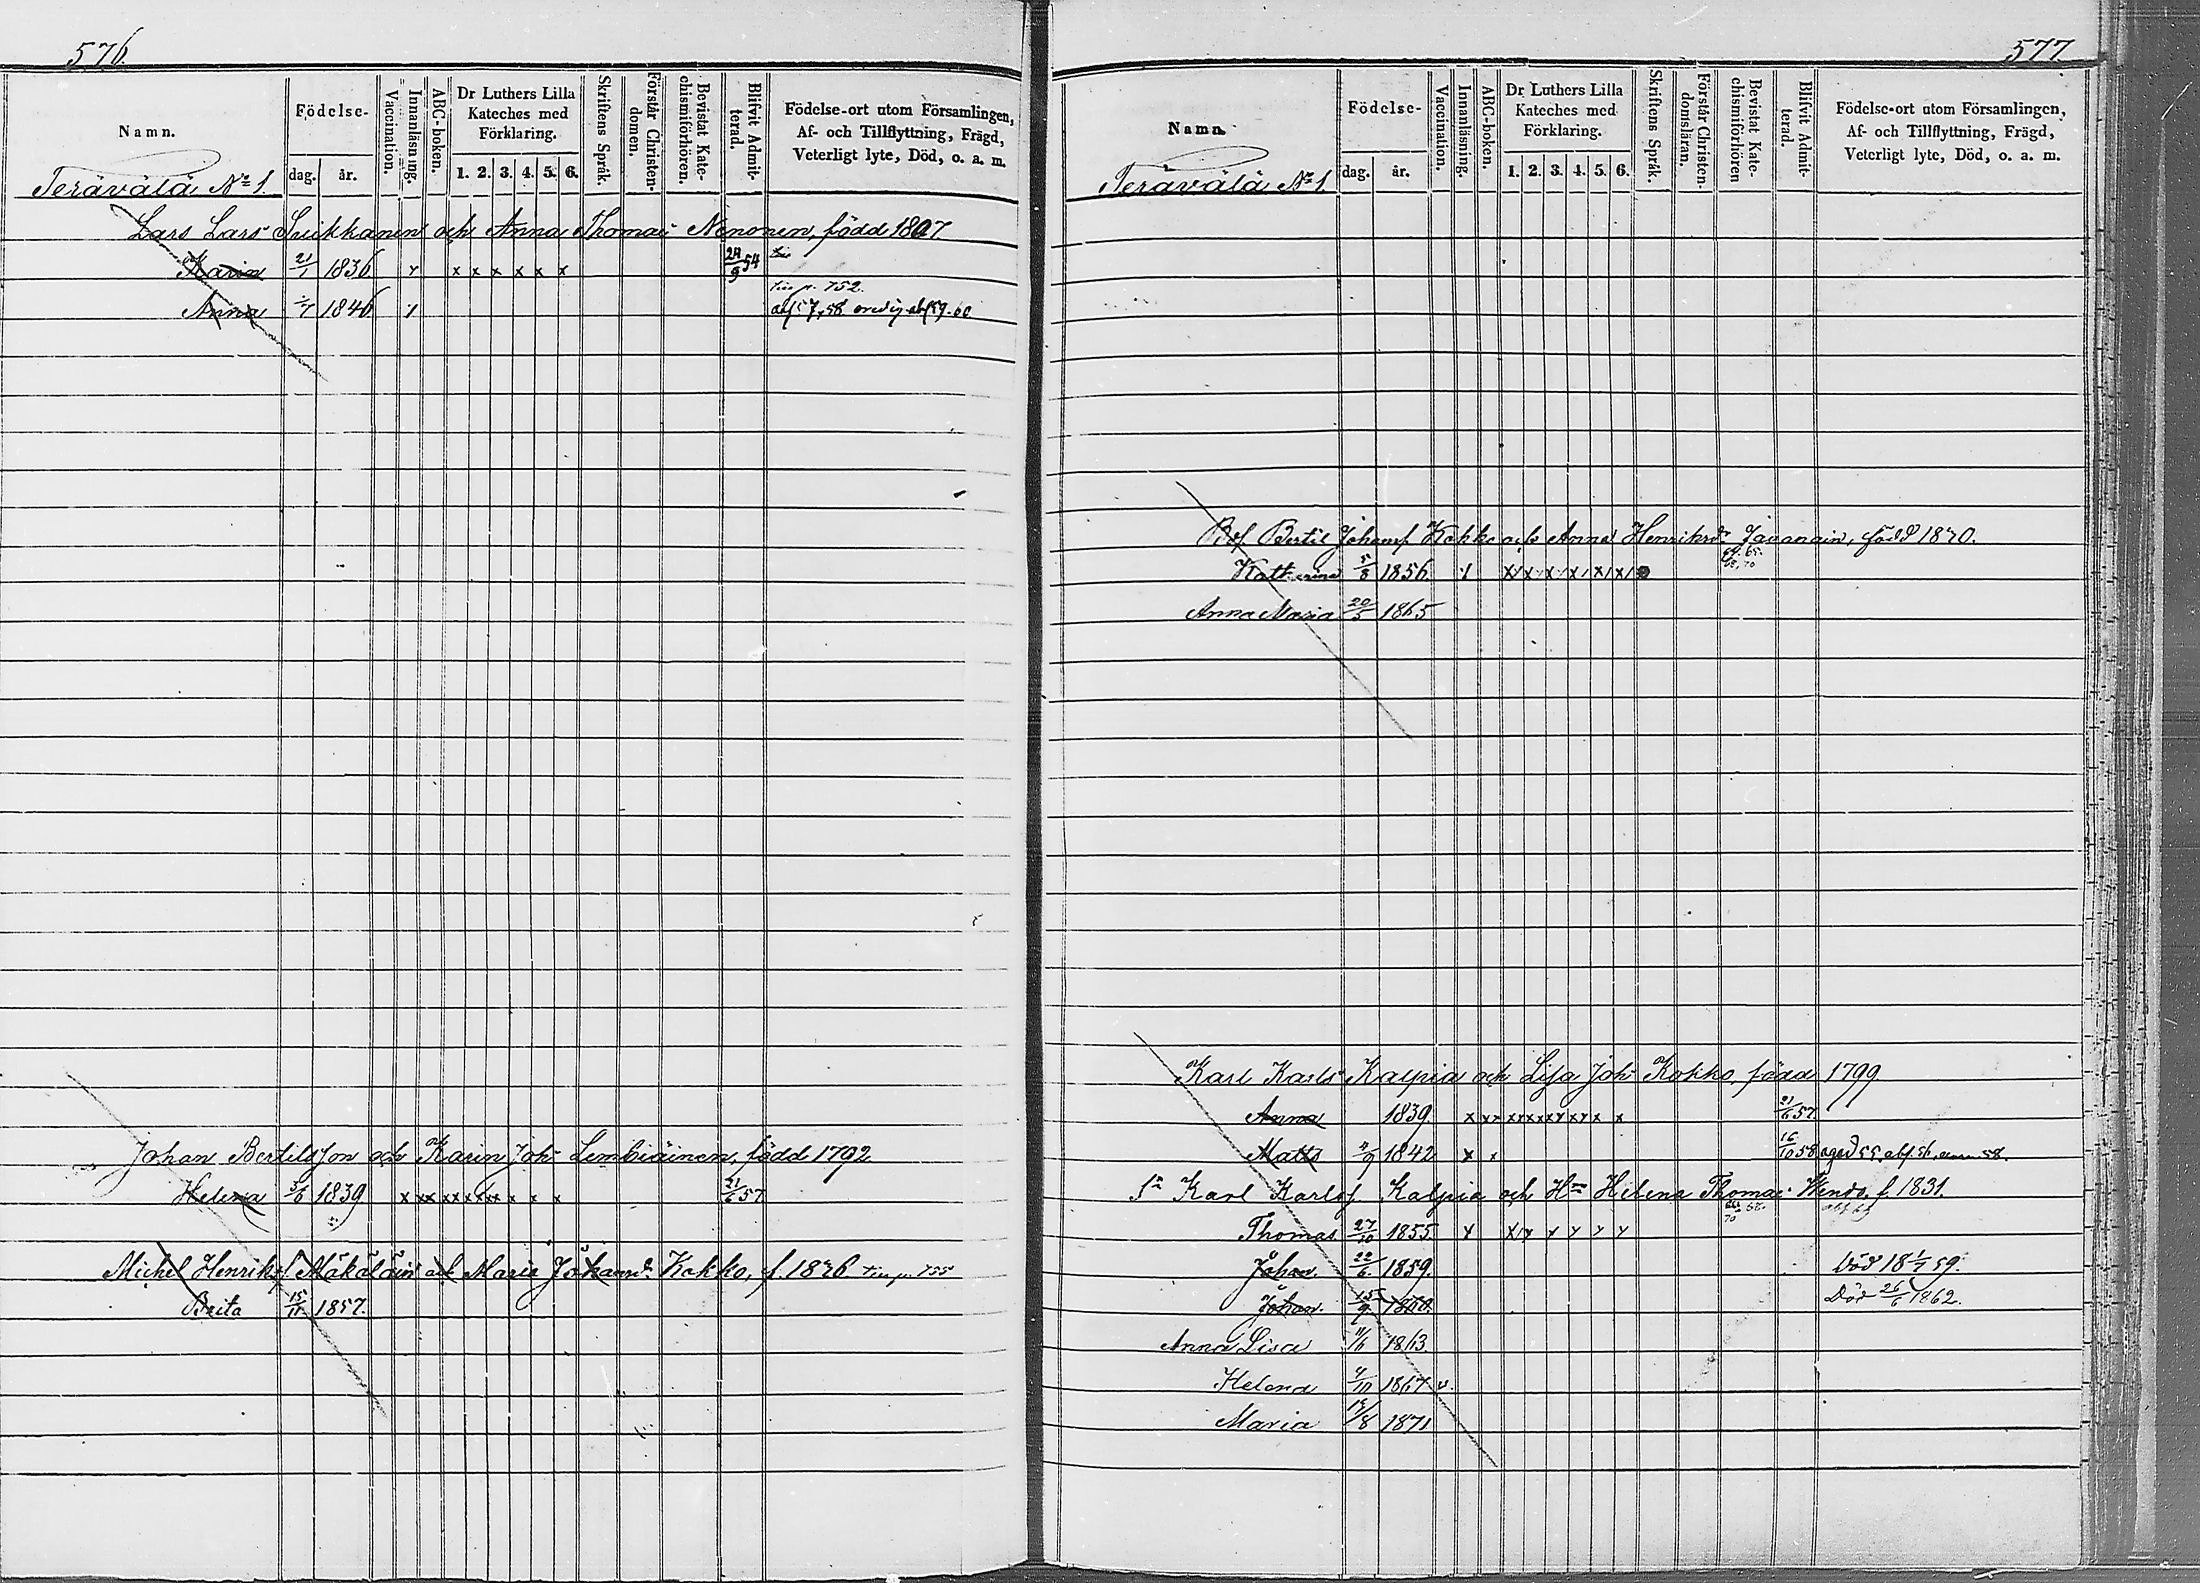 576.
Namn.
Födelse-
dag.
år.
Vaccination.
Innanläsning.
ABC-boken.
Dr Luthers Lilla Kateches med Förklaring.
1. 2. 3. 4. 5. 6.
Skriftens Språk.
Förstår Christen-domen.
Bevistat Kate-chismiförhören.
Blifvit Admit-terad.
Födelse-ort utom Församlingen,
Af- och Tillflyttning, Frägd,
Veterligt lyte, Död, o. a. m.
Terävälä No 1.
Lars Lars Suikkanen och Anna Thomas Nenonen, född 1807.
Karin 21/1 1836 x x x x x x 24/9 54
Anna 1846
tis p. 752.
Johan Bertilsson och Karin Joh. Lembiäinen, född 1792
Helena 3/6 1839 x xx xx xx xx x x x 21/6 57
Michel Henriks. Mäkäläin och Maria Johansd. Kokko, f. 1826. tis p. 755
Brita 15/11 1857.
577.
Namn.
Födelse-
dag.
år.
Vaccination.
Innanläsning.
ABC-boken.
Dr Luthers Lilla Kateches med Förklaring.
1. 2. 3. 4. 5. 6.
Skriftens Språk.
Förstår Christen-domsläran.
Bevistat Kate-chismiförhören
Blifvit Admit-terad.
Födelse-ort utom Församlingen,
Af- och Tillflyttning, Frägd,
Veterligt lyte, Död, o. a. m.
Terävälä No 1.
Bertil Johansf Kokko och Anna Henriksd. Javanain, född 1820.
Katharina 5/8 1856
Anna Maria 20/5 1865
Karl Karls Kalpia och Lisa Joh. Kokko, född 1799.
Anna 1839. 21/6 57.
Matts 1842 x x 16/10 58
Sn Karl Karlsf. Kalpia och Hu Helena Thomas f. 1831.
Thomas 27/10 1855.
Johan. 22/6 1859. Död 18 1/7 59.
Johan. 15/9 1860. Död 26/6 1862.
Anna Lisa 11/6 1863.
Helena 1867 v.
Maria 1871